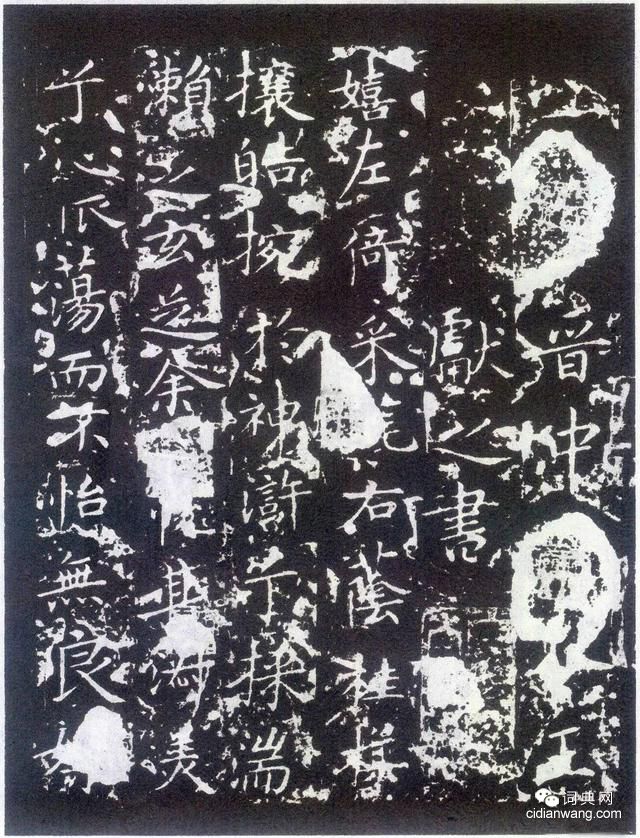 晉中王
獻之書
嬉左倚采旄右蔭桂旗
攘皓捥於神滸兮採湍
瀨之玄芝余其淑美
兮心振蕩而不怡無良
词典网
cidianwang.com